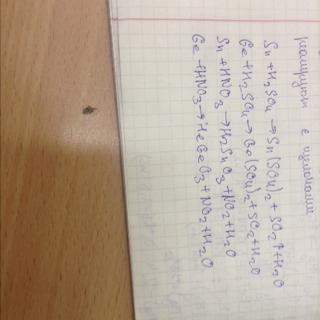 реагируют с щелочами
Sn + H₂SO₄ → Sn(SO₄)₂ + SO₂↑ + H₂O
Ge + H₂SO₄ → Ge(SO₄)₂ + SO₂ + H₂O
Sn + HNO₃ → H₂SnO₃ + NO₂ + H₂O
Ge + HNO₃ → H₂GeO₃ + NO₂ + H₂O